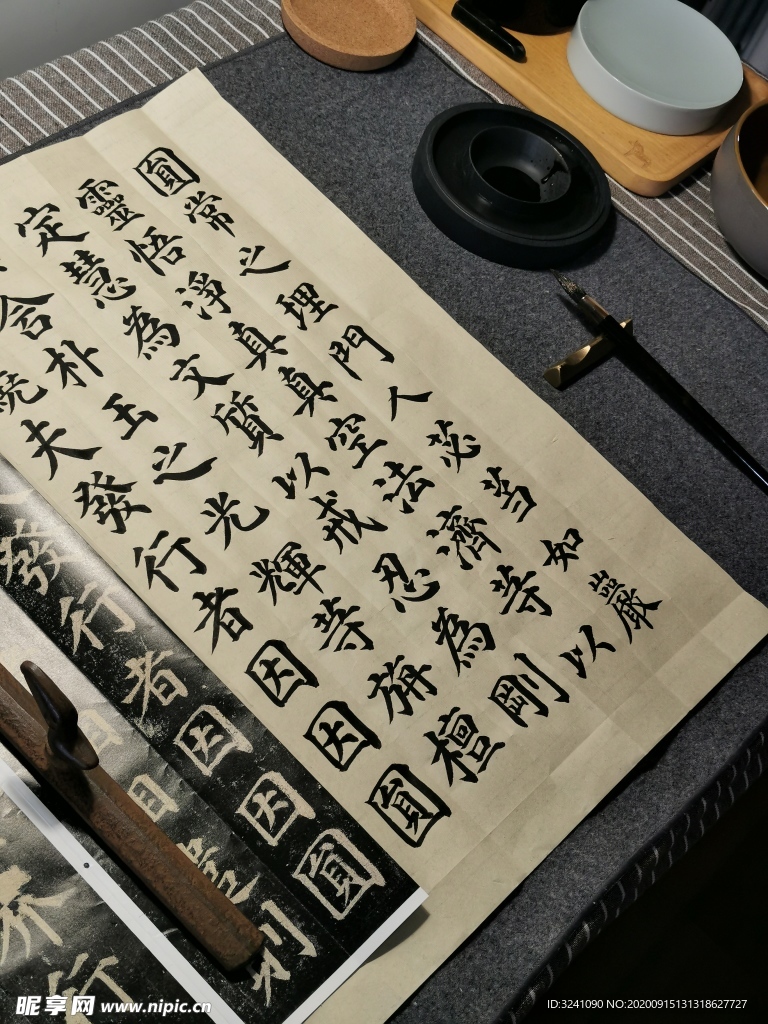 圓常之理門人苾芻如嚴
靈悟淨真真空法濟等以
定慧為文質以戒忍為剛
含朴玉之光輝等旃檀
繞夫發行者因因圓
發行者因因圓
則
界行
昵享网 www.nipic.cn
ID:3241090 NO:20200915131318627727